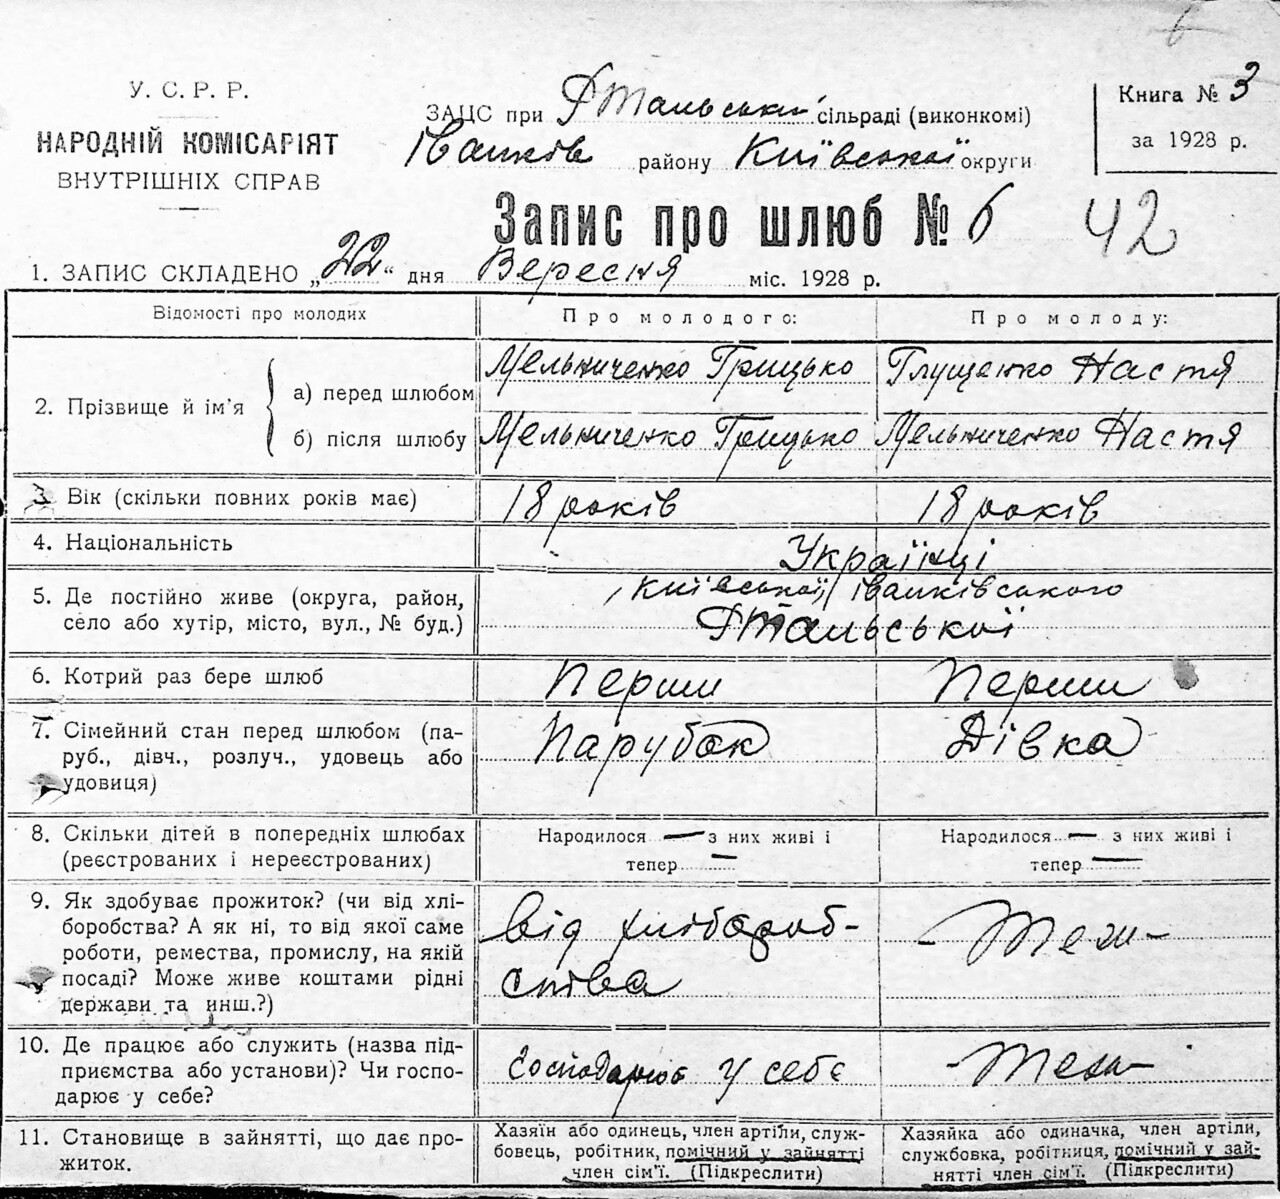 6
У. С. Р. Р.
НАРОДНІЙ КОМІСАРІЯТ
ВНУТРІШНІХ СПРАВ
ЗАЦС при Фтальський сільраді (виконкомі)
Іванків району Київської округи
Книга № 3
за 1928 р.
Запис про шлюб № 6
42
1. ЗАПИС СКЛАДЕНО „22“ дня Вересня міс. 1928 р.
Відомості про молодих
Про молодого:
Про молоду:
2. Прізвище й ім'я
а) перед шлюбом
Мельниченко Грицько
Глущенко Настя
б) після шлюбу
Мельниченко Грицько
Мельниченко Настя
3. Вік (скільки повних років має)
18 років
18 років
4. Національність
Українці
5. Де постійно живе (округа, район,
село або хутір, місто, вул., № буд.)
Київської, Іванківського
Фтальської
6. Котрий раз бере шлюб
Перши
Перши
7. Сімейний стан перед шлюбом (па-
руб., дівч., розлуч., удовець або
удовиця)
Парубок
Дівка
8. Скільки дітей в попередніх шлюбах
(реєстрованих і нереєстрованих)
Народилося — з них живі і
тепер —
Народилося — з них живі і
тепер —
9. Як здобуває прожиток? (чи від хлі-
боробства? А як ні, то від якої саме
роботи, ремества, промислу, на якій
посаді? Може живе коштами рідні
держави та инш.?)
Від хлібороб-
ства
- Теж -
10. Де працює або служить (назва під-
приємства або установи)? Чи госпо-
дарює у себе?
Господарює у себе
- Теж -
11. Становище в зайнятті, що дає про-
житок.
Хазяїн або одинець, член артіли, служ-
бовець, робітник, помічний у зайнятті
член сім'ї. (Підкреслити)
Хазяйка або одиначка, член артіли,
службовка, робітниця, помічний у зай-
нятті член сім'ї. (Підкреслити)